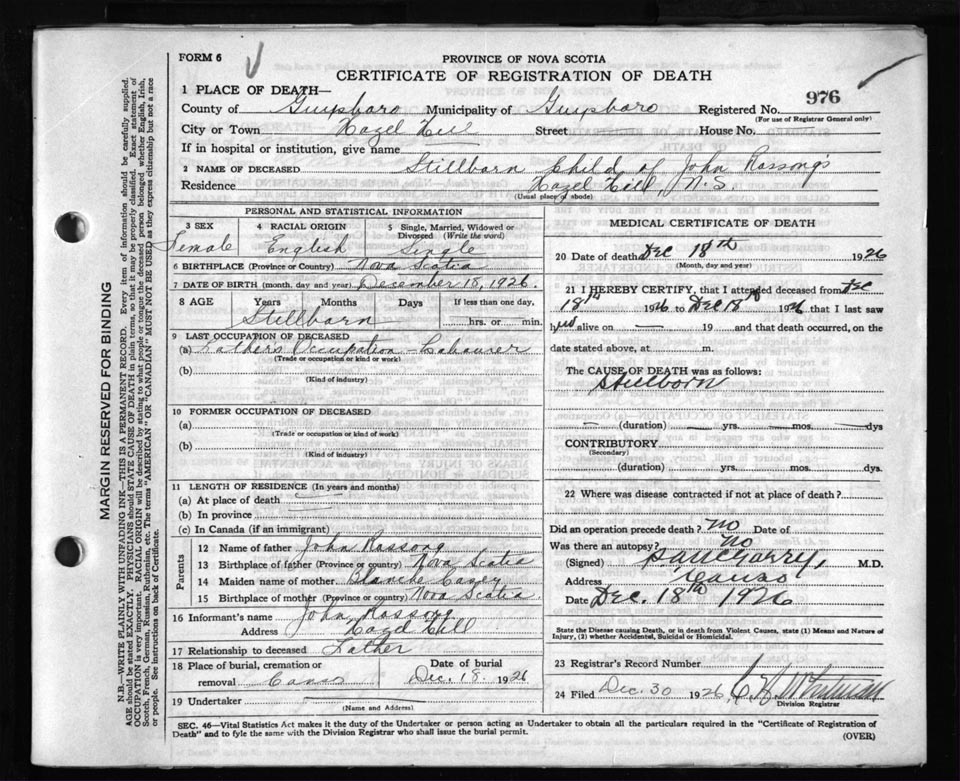 FORM 6
PROVINCE OF NOVA SCOTIA
CERTIFICATE OF REGISTRATION OF DEATH
1 PLACE OF DEATH—
County of Guysboro Municipality of Guysboro Registered No. 976
(For use of Registrar General only)
City or Town Hazel Hill Street House No.
If in hospital or institution, give name
2 NAME OF DECEASED Stillborn Child of John Rassong's
Residence Hazel Hill, N.S
(Usual place of abode)
PERSONAL AND STATISTICAL INFORMATION
3 SEX Female
4 RACIAL ORIGIN English
5 Single, Married, Widowed or Divorced (Write the word) Single
6 BIRTHPLACE (Province or Country) Nova Scotia
7 DATE OF BIRTH (month, day and year) December 18, 1926.
8 AGE Years Months Days If less than one day,
Stillborn hrs. or min.
9 LAST OCCUPATION OF DECEASED
(a) Father's Occupation - Labourer
(Trade or occupation or kind or work)
(b)
(Kind of industry)
10 FORMER OCCUPATION OF DECEASED
(a)
(Trade or occupation or kind of work)
(b)
(Kind of industry)
11 LENGTH OF RESIDENCE (In years and months)
(a) At place of death
(b) In province
(c) In Canada (if an immigrant)
Parents
12 Name of father John Rassong
13 Birthplace of father (Province or country) Nova Scotia
14 Maiden name of mother Blanche Casey
15 Birthplace of mother (Province or country) Nova Scotia
16 Informant's name John Rassong
Address Hazel Hill
17 Relationship to deceased Father
18 Place of burial, cremation or removal Canso Date of burial Dec. 18. 1926
19 Undertaker
(Name and Address)
MEDICAL CERTIFICATE OF DEATH
20 Date of death Dec 18th 1926
(Month, day and year)
21 I HEREBY CERTIFY, that I attended deceased from Dec
18th 1926 to Dec 18th 1926 that I last saw
h alive on — 19 and that death occurred, on the
date stated above, at m.
The CAUSE OF DEATH was as follows:
Stillborn
(duration) yrs. mos. dys
CONTRIBUTORY
(Secondary)
(duration) yrs. mos. dys.
22 Where was disease contracted if not at place of death?
Did an operation precede death? no Date of
Was there an autopsy? no
(Signed) M.D.
Address Canso
Date Dec. 18th 1926
State the Disease causing Death, or in Death from Violent Causes, state (1) Means and Nature of
Injury, (2) whether Accidental, Suicidal or Homicidal.
23 Registrar's Record Number
24 Filed Dec 30 1926
Division Registrar
SEC. 46—Vital Statistics Act makes it the duty of the Undertaker or person acting as Undertaker to obtain all the particulars required in the "Certificate of Registration of
Death" and to fyle the same with the Division Registrar who shall issue the burial permit.
(OVER)
MARGIN RESERVED FOR BINDING
N.B.—WRITE PLAINLY WITH UNFADING INK—THIS IS A PERMANENT RECORD. Every item of information should be carefully supplied.
AGE should be stated EXACTLY. PHYSICIANS should STATE CAUSE OF DEATH in plain terms, so that it may be properly classified. Exact statement of
OCCUPATION is very important. RACIAL ORIGIN will be described by stating to what people or tongue the deceased person belonged whether English, Irish,
Scotch, French, German, Russian, Ruthenian, etc. The terms "AMERICAN" OR "CANADIAN" MUST NOT BE USED as they express citizenship but not a race
or people. See instructions on back of Certificate.